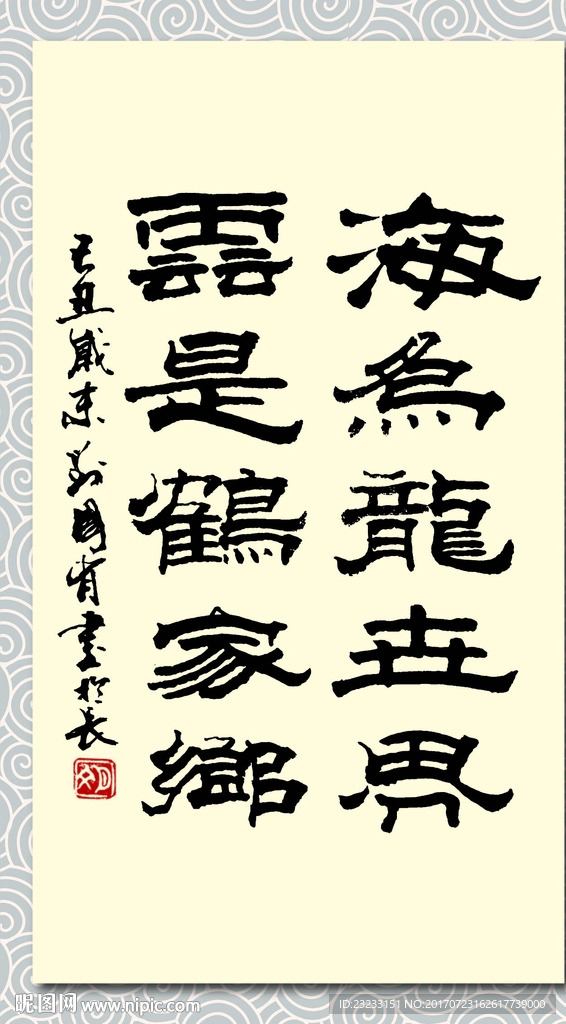 海為龍世界
雲是鶴家鄉
己丑歲末 劉國育書於長
昵图网 www.nipic.com
ID:23233151 NO:20170723162617739000